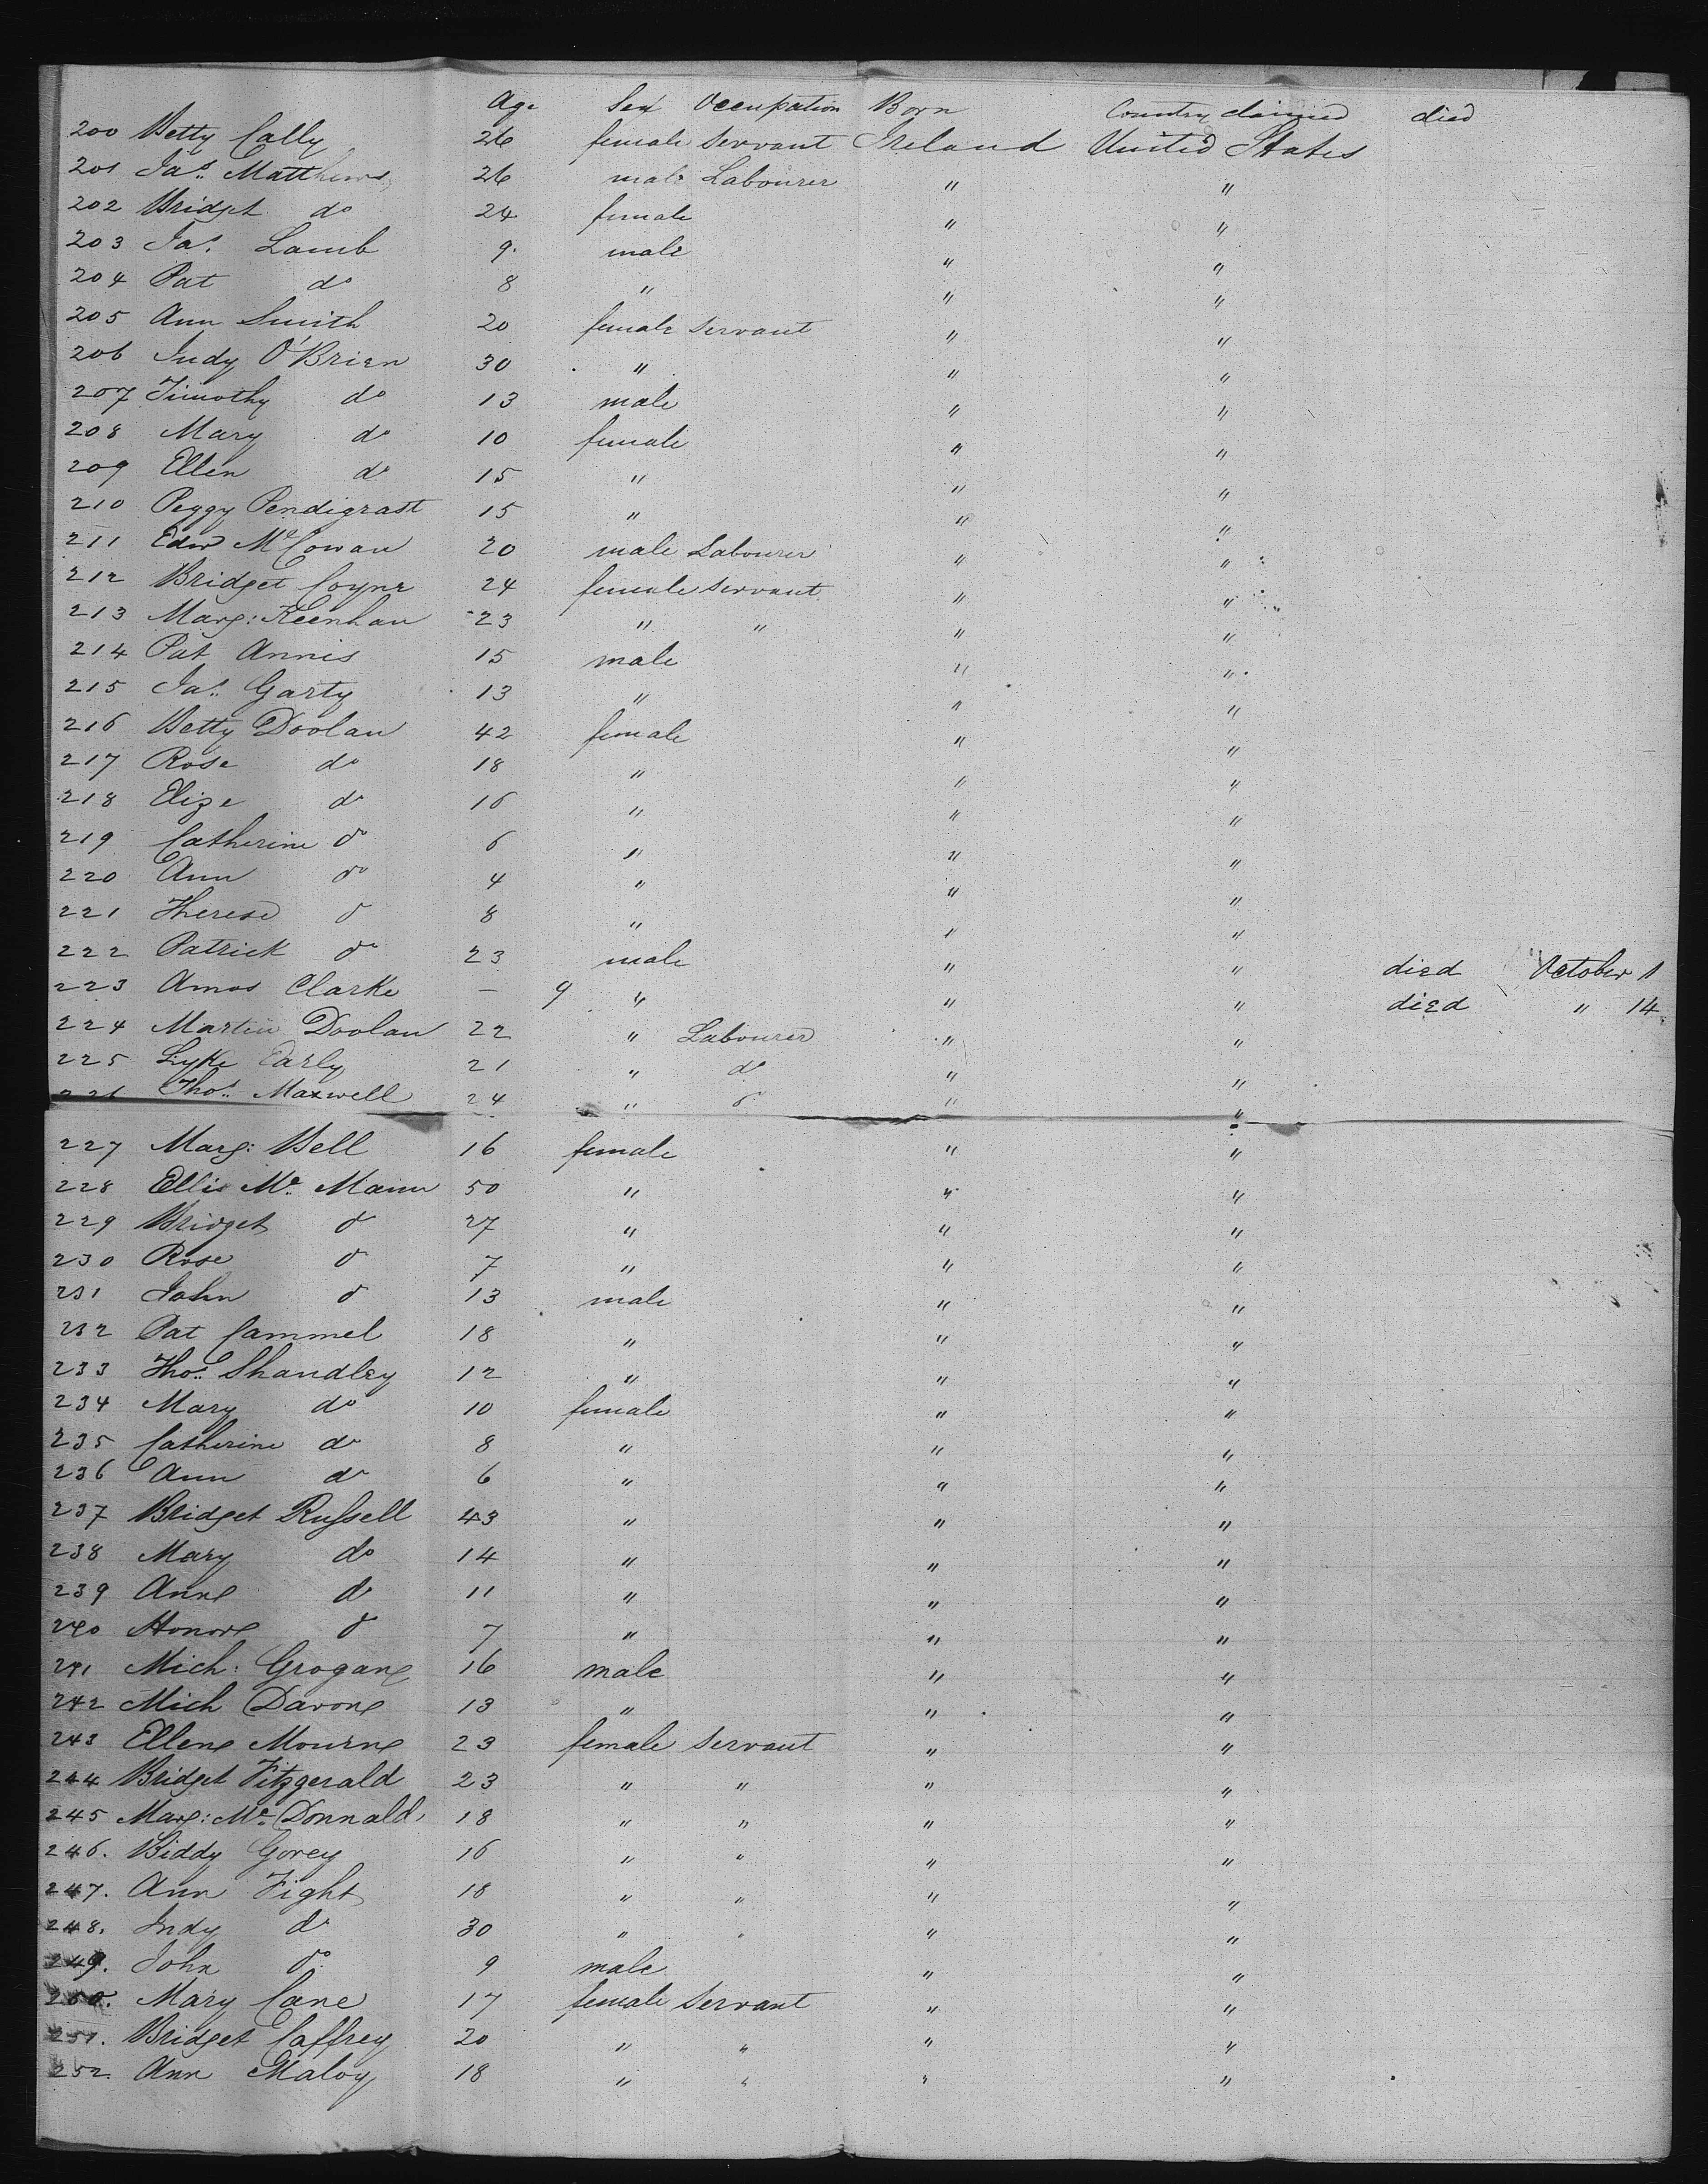 Age Sex Occupation Born Country claimed died
200 Betty Cally 26 female servant Ireland United States
201 Jas. Matthews 26 male Labourer " "
202 Bridget do 24 female " "
203 Jas. Lamb 9. male " "
204 Pat do 8 " " "
205 Ann Smith 20 female servant " "
206 Judy O'Brien 30 " " "
207 Timothy do 13 male " "
208 Mary do 10 female " "
209 Ellen do 15 " " "
210 Peggy Pendigrast 15 " " "
211 Edw McCowan 20 male Labourer " "
212 Bridget Coyne 24 female servant " "
213 Marg: Keenhan 23 " " " "
214 Pat Annis 15 male " "
215 Jas. Garty 13 " " "
216 Betty Doolan 42 female " "
217 Rose do 18 " " "
218 Elize do 16 " " "
219 Catherine do 6 " " "
220 Ann do 4 " " "
221 Therese d 8 " " "
222 Patrick do 23 male " " died October 1
223 Amos Clarke — 9 " " " died " 14
224 Martin Doolan 22 " Labourer " "
225 Lyke Early 21 " do " "
226 Thos. Maxwell 24 " do " "
227 Marg: Bell 16 female " "
228 Ellis Mc. Mann 50 " " "
229 Bridget d 27 " " "
230 Rose d 7 " " "
231 John d 13 male " "
232 Pat Cammel 18 " " "
233 Thos. Shandley 12 " " "
234 Mary do 10 female " "
235 Catherine do 8 " " "
236 Ann do 6 " " "
237 Bridget Russell 43 " " "
238 Mary do 14 " " "
239 Anne do 11 " " "
240 Honore d 7 " " "
241 Mich: Grogane 16 male " "
242 Mich Davone 13 " " "
243 Ellene Mourne 23 female servant " "
244 Bridget Fitzgerald 23 " " " "
245 Marg: Mc. Donnald 18 " " " "
246. Biddy Gorey 16 " " " "
247. Ann Fight 18 " " " "
248. Judy do 30 " " " "
249. John do 9 male " "
250. Mary Cane 17 female servant " "
251. Bridget Caffrey 20 " " " "
252. Ann Maloy 18 " " " "